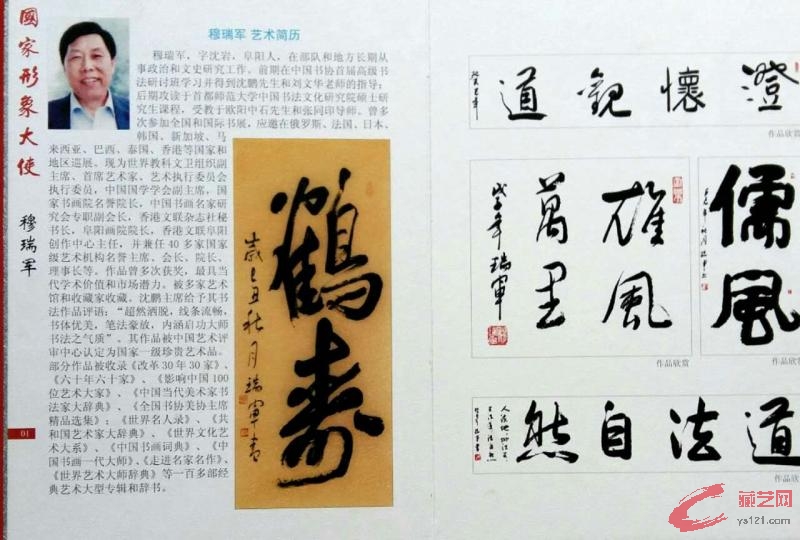 國家形象大使
穆瑞军
01
穆瑞军 艺术简历
穆瑞军，字沈岩，阜阳人，在部队和地方长期从
事政治和文史研究工作。前期在中国书协首届高级书
法研讨班学习并得到沈鹏先生和刘文华老师的指导；
后期攻读于首都师范大学中国书法文化研究院硕士研
究生课程，受教于欧阳中石先生和张同印导师。曾多
次参加全国和国际书展，应邀在俄罗斯、法国、日本、
韩国、新加坡、马
来西亚、巴西、泰国、香港等国家和
地区巡展。现为世界教科文卫组织副
主席、首席艺术家、艺术执行委员会
执行委员，中国国学学会副主席，国
家书画院名誉院长，中国书画名家研
究会专职副会长，香港文联杂志社秘
书长，阜阳画院院长，香港文联阜阳
创作中心主任，并兼任40多家国家
级艺术机构名誉主席、会长、院长、
理事长等。作品曾多次获奖，最具当
代学术价值和市场潜力。被多家艺术
馆和收藏家收藏。沈鹏主席给予其书
法作品评语：“超然洒脱，线条流畅，
书体优美，笔法豪放，内涵启功大师
书法之气质”。其作品被中国艺术评
审中心认定为国家一级珍贵艺术品。
部分作品被收录《改革30年30家》、
《六十年六十家》、《影响中国100
位艺术大家》、《中国当代美术家书
法家大辞典》、《全国书协美协主席
精品选集》；《世界名人录》、《共
和国艺术家大辞典》、《世界文化艺
术大系》、《中国书画词典》、《中
国书画一代大师》、《走进名家名作》、
《世界艺术大师辞典》等一百多部经
典艺术大型专辑和辞书。
鶴壽
歲己丑秋月瑞軍書
澄懷觀道
作品欣赏
雄風
萬里
戊子年瑞軍
作品欣赏
儒風
作品欣
道法自然
作品欣
藏艺网
ys121.com